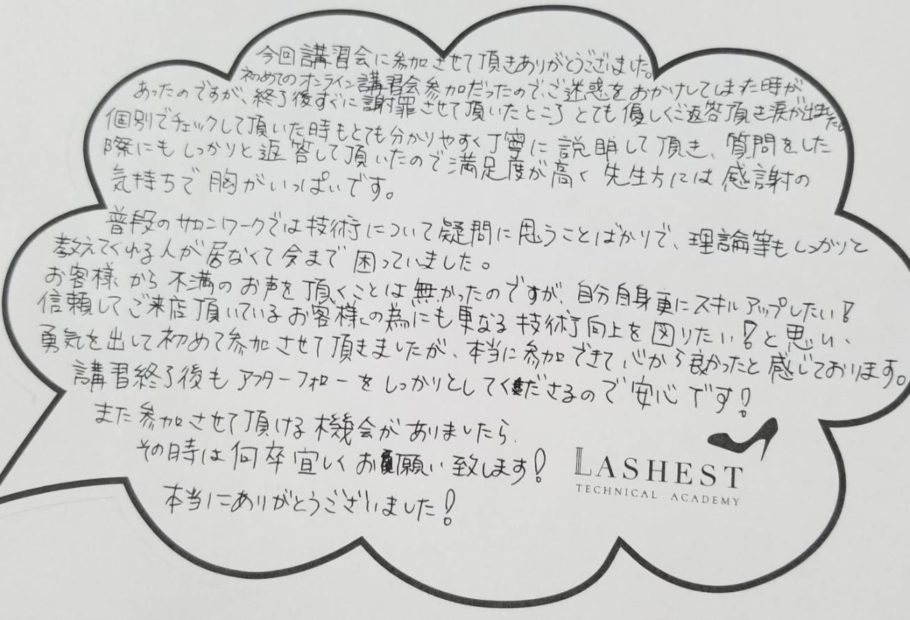 今回講習会に参加させて頂きありがとうございました。
初めてのオンライン講習会参加だったのでご迷惑をおかけしてしまた時が
あったのですが、終了後すぐに謝罪させて頂いたところ とても優しくご返答頂き涙が出ました。
個別でチェックして頂いた時もとても分かりやすく丁寧に説明して頂き、質問をした
際にもしっかりと返答して頂いたので満足度が高く先生方には感謝の
気持ちで胸がいっぱいです。
普段のサロンワークでは技術について疑問に思うことばかりで、理論等もしっかりと
教えてくれる人が居なくて今まで困っていました。
お客様から不満のお声を頂くことは無かったのですが、自分自身更にスキルアップしたい!
信頼してご来店頂いているお客様の為にも更なる技術向上を図りたい!と思い、
勇気を出して初めて参加させて頂きましたが、本当に参加できて心から良かったと感じております。
講習終了後もアフターフォローをしっかりとしてくださるので安心です!
また参加させて頂ける機会がありましたら、
その時は何卒宜しくお願い致します!
本当にありがとうございました!
LASHEST
TECHNICAL ACADEMY